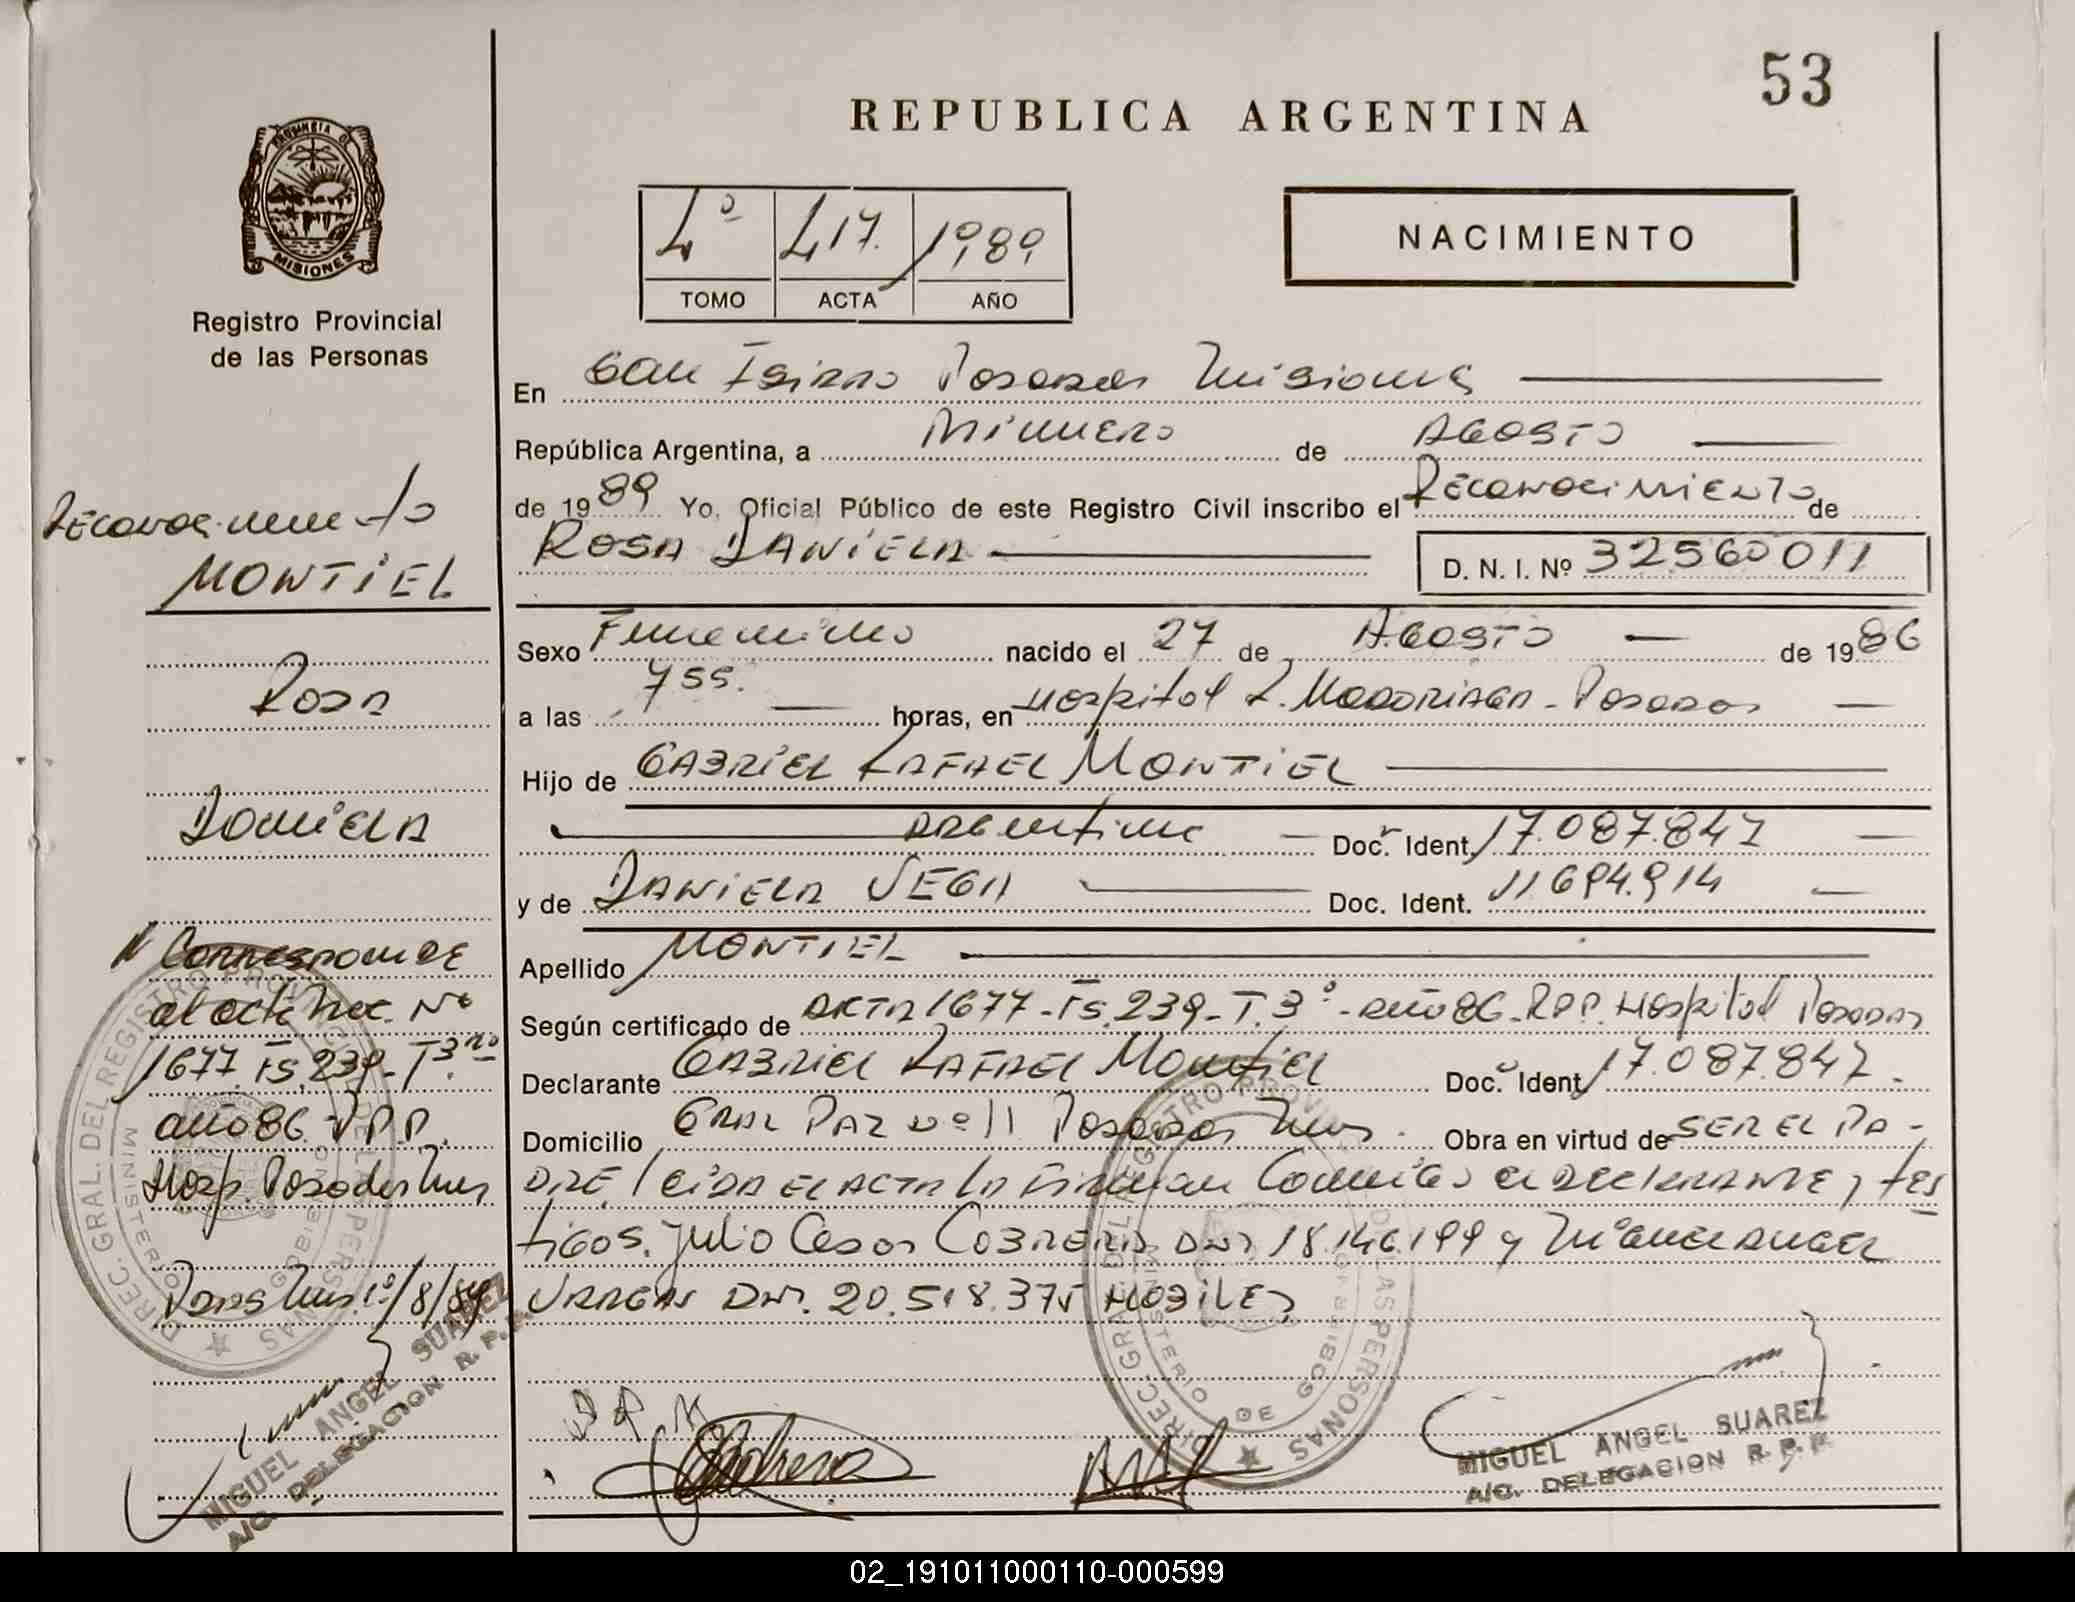 53
REPUBLICA ARGENTINA
PROVINCIA DE
MISIONES
Registro Provincial
de las Personas
4º 417. 1989
TOMO ACTA AÑO
NACIMIENTO
En San Isidro Posadas Misiones
República Argentina, a Primero de Agosto
de 1989 Yo, Oficial Público de este Registro Civil inscribo el Reconocimiento de
ROSA DANIELA D. N. I. Nº 32560011
Sexo Femenino nacido el 27 de Agosto de 1986
a las 755. horas, en Hospital R. Madariaga - Posadas
Hijo de GABRIEL RAFAEL MONTIEL
argentino Doc. Ident. 17.087.847
y de DANIELA VEGA Doc. Ident. 11694.914
Apellido MONTIEL
Según certificado de Acta 1677 - Fs. 239 - T. 3º - año 86 - RPP. Hospital Posadas
Declarante GABRIEL RAFAEL Montiel Doc. Ident. 17.087.847.
Domicilio Gral Paz Nº 11 Posadas Mnes. Obra en virtud de SER EL PA-
DRE leida el acta la firman Conmigo el declarante y tes
tigos. Julio Cesar Cabrera DNI 18.146.199 y Miguel Angel
Vargas DNI. 20.518.375 Habiles
Reconocimiento
MONTIEL
Rosa
Daniela
Corresponde
al acta Nac. Nº
1677. Fs. 239 - T 3ro
año 86. RPP.
Hosp. Posadas Mnes
Pdas Mnes. 1º/8/89
DIREC. GRAL. DEL REGISTRO PROVINCIAL DE LAS PERSONAS
MINISTERIO DE GOBIERNO
MIGUEL ANGEL SUAREZ
A/C. DELEGACION R. P. P.
DIREC. GRAL. DEL REGISTRO PROVINCIAL DE LAS PERSONAS
MINISTERIO DE GOBIERNO
MIGUEL ANGEL SUAREZ
A/C. DELEGACION R. P. P.
02_191011000110-000599